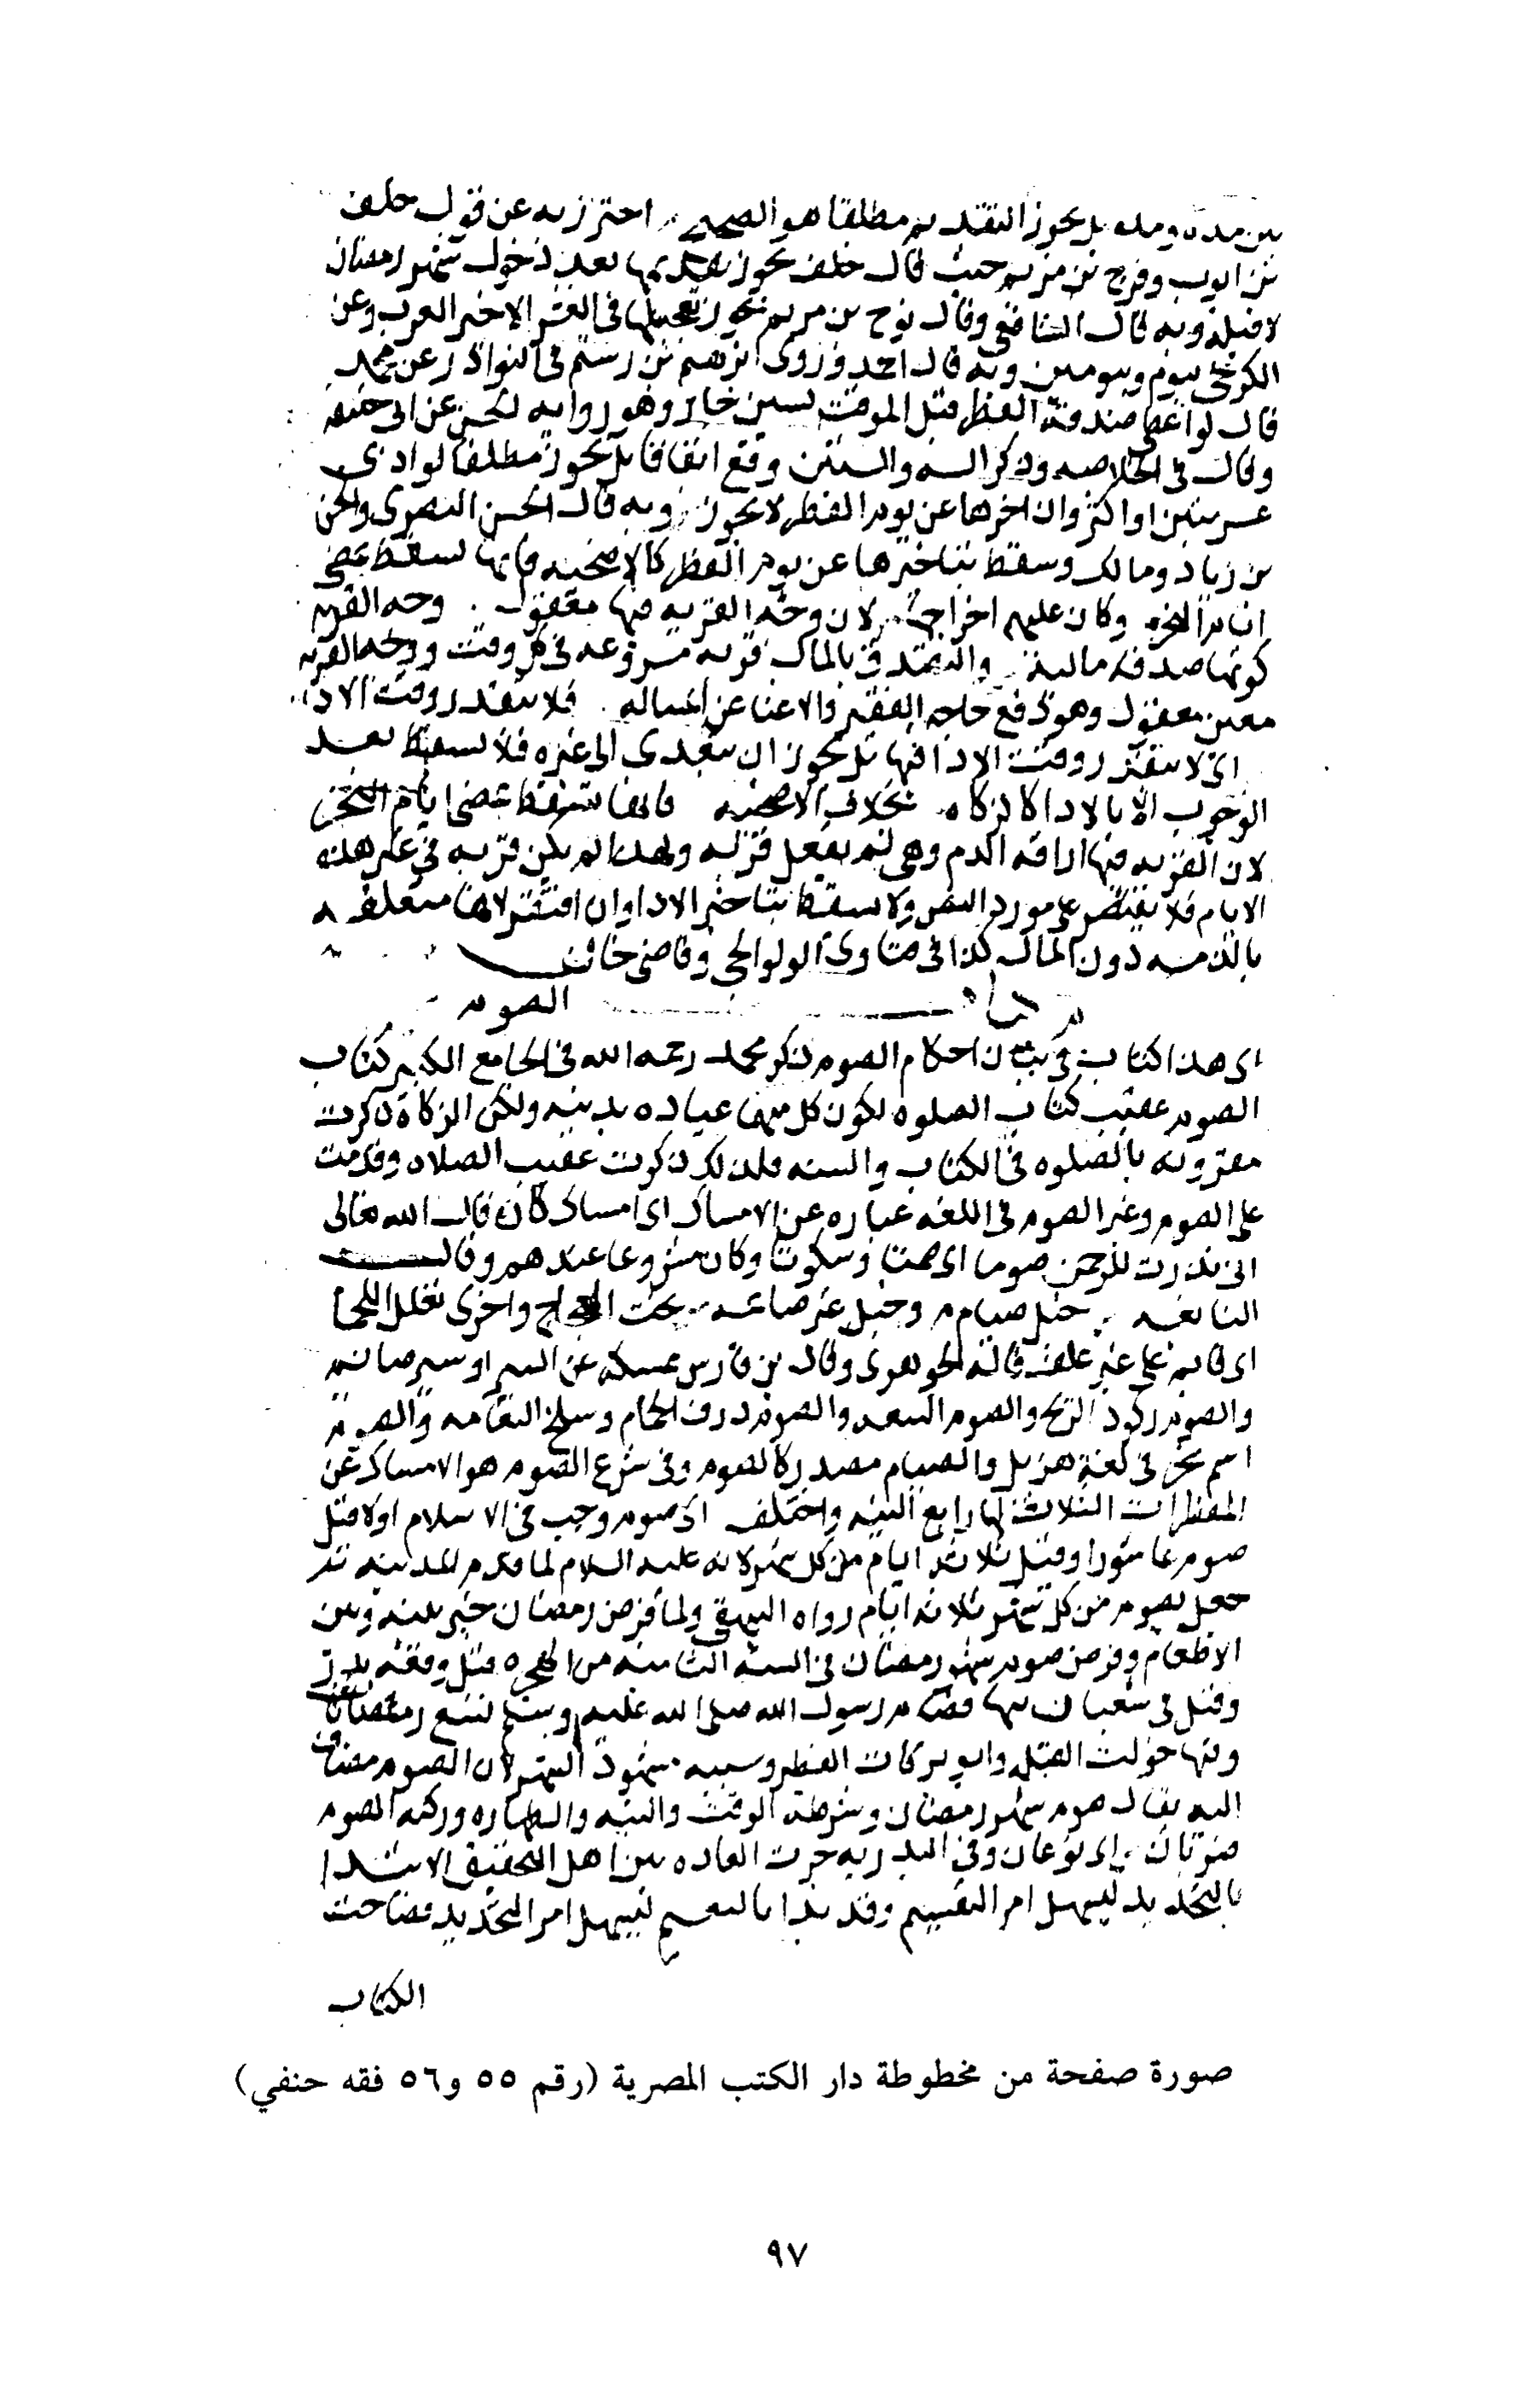 بين مدة ومدة بل يجوز التقديم مطلقا هو الصحيح احترز به عن قول خلف
بن ايوب وفرح بن مريم حيث قال خلف يجوز تعجيلها بعد دخول شهر رمضان
لا قبله وبه قال الشافعي وقال نوح بن مريم يجوز تعجيلها في العشر الاخير وعن
الكرخي بيوم ويومين وبه قال احمد وروى ابرهيم بن رستم في النوادر عن محمد
قال لو اعطى صدقة الفطر قبل الوقت بسنين جاز وهو رواية الحسن عن ابي حنيفه
وقال في الخلاصه وذكر السنه والسنتين وقع اتفاقا بل يجوز مطلقا لو ادى
عشر سنين او اكثر وان اخرها عن يوم الفطر لا يجوز وبه قال الحسن البصرى والحسن
بن زياد ومالك وسقط بتاخيرها عن يوم الفطر كالاضحيه فانها تسقط بمضي
ايام النحر وكان عليهم اخراجها لان وجه القربه فيها معقول وجه القربه
كونها صدقه ماليه والتصدق بالمال قربه مشروعه في كل وقت ووجه القربه
معين معقول وهو دفع حاجه الفقير والاغنا عن المساله فلا يتقدر وقت الادا
اى لا يتقدر وقت الادا فيها بل يجوز ان يتعدى الى غيره فلا يسقط بعد
الوجوب الا بالادا كالزكاه بخلاف الاضحيه فانها تسقط بمضي ايام النحر
لان القربه فيها اراقه الدم وهي لم تعقل قربه ولهذا لم يكن قربه في غير هذه
الايام فلا يقتصر على مورد النص ولا يسقط بتاخير الادا وان افتقر لانها متعلقه
بالذمه دون المال كذا في فتاوى الولوالجي وقاضي خان
كتاب الصوم
اى هذا كتاب في بيان احكام الصوم ذكر محمد رحمه الله في الجامع الكبير كتاب
الصوم عقيب كتاب الصلوه لكون كل منهما عباده بدنيه ولكن الزكاة ذكرت
مقرونه بالصلوه في الكتاب والسنه فلذلك ذكرت عقيب الصلاه وقدمت
على الصوم وغير الصوم في اللغه عباره عن الامساك اى امساك كان قال الله تعالى
انى نذرت للرحمن صوما اى صمتا وسكوتا وكان مشروعا عندهم وقال
النابغه خيل صيام وخيل غير صائمه تحت العجاج واخرى تعلك اللجما
اى قايمه على غير علف قاله الجوهرى وقال بن فارس ممسكه عن السير اوسير صايم
والصوم ركود الريح والصوم البيعه والصوم ذرق الحمام وسلح النعامه والصوم
اسم شجر في لغة هذيل والصيام مصدر كالصوم وفي شرع الصوم هو الامساك عن
المفطرات الثلاثة لها رابع النيه واختلف اى صوم وجب في الاسلام اولا قيل
صوم عاشورا وقيل ثلاثة ايام من كل شهر لانه عليه السلام لما قدم المدينه
جعل يصوم من كل شهر ثلاثه ايام رواه البيهقي ولما فرض رمضان خير بينه وبين
الاطعام وفرض صوم شهر رمضان في السنه الثامنه من الهجره قبل وقعه بدر
وقيل في شعبان منها فصام رسول الله صلى الله عليه وسلم تسع رمضانات
وفيها حولت القبله وابو بركات الفطر وسببه شهود الشهر لان الصوم مضاف
اليه يقال صوم شهر رمضان وشرطه الوقت والنيه والطهاره وركنه الصوم
ضربان اى نوعان وفي البدريه جرت العاده بين اهل التحقيق الابتدا
بالتحديد ليسهل امر التقسيم وقد بدا بالتقسيم ليسهل امر التحديد فصاحب
الكتاب
صورة صفحة من مخطوطة دار الكتب المصرية (رقم ٥٥ و٥٦ فقه حنفي)
٩٧